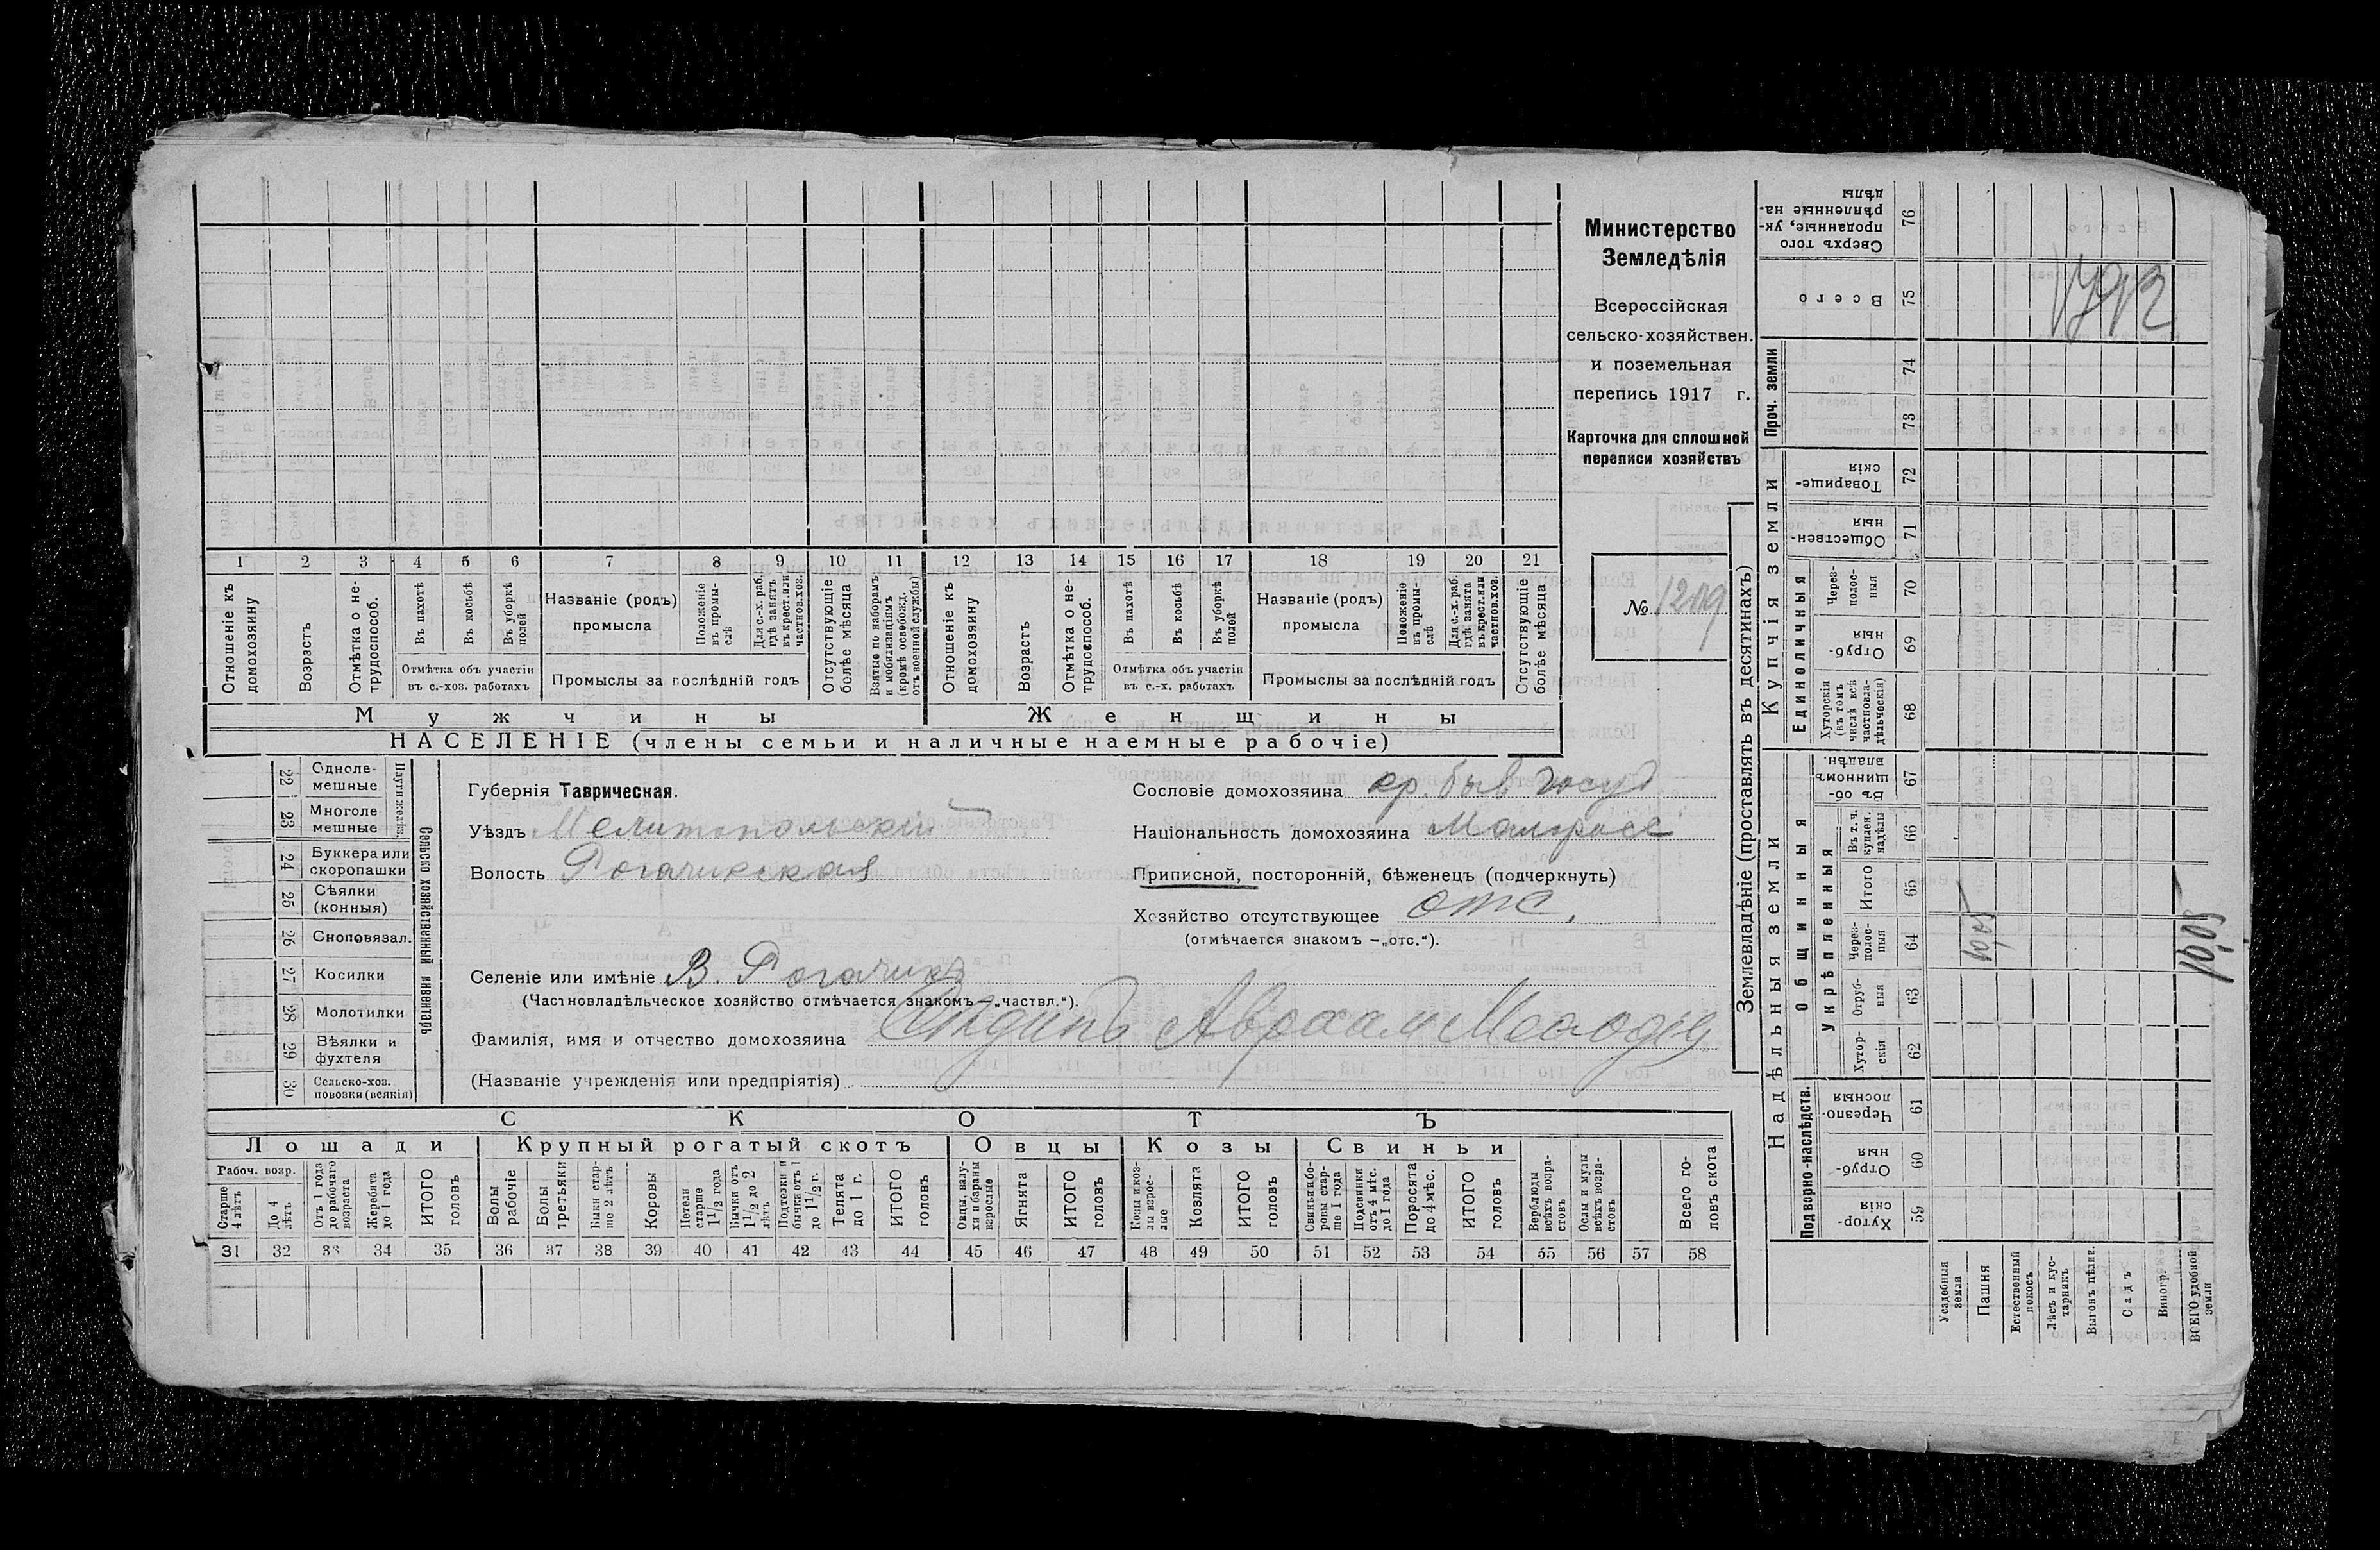 Министерство
Земледѣлія
Всероссійская
сельско-хозяйствен.
и поземельная
перепись 1917 г.
Карточка для сплошной
переписи хозяйствъ
№ 1209
1 2 3 4 5 6 7 8 9 10 11 12 13 14 15 16 17 18 19 20 21
Отношеніе къ домохозяину
Возрастъ
Отмѣтка о не-трудоспособ.
Въ пахотѣ
Въ косьбѣ
Въ уборкѣ полей
Отмѣтка объ участіи
въ с.-хоз. работахъ
Названіе (родъ)
промысла
Положеніе въ промы-слѣ
Для с.-х. раб. гдѣ занятъ въ крест. или частновл. хоз.
Промыслы за послѣдній годъ
Отсутствующіе болѣе мѣсяца
Взятые по наборамъ и мобилизаціямъ (кромѣ освобожд. отъ военной службы)
Отношеніе къ домохозяину
Возрастъ
Отмѣтка о не-трудоспособ.
Въ пахотѣ
Въ косьбѣ
Въ уборкѣ полей
Отмѣтка объ участіи
въ с.-х. работахъ
Названіе (родъ)
промысла
Положеніе въ промы-слѣ
Для с.-х. раб. гдѣ занята въ крест. или частновл. хоз.
Промыслы за послѣдній годъ
Отсутствующіе болѣе мѣсяца
Мужчины
Женщины
НАСЕЛЕНІЕ (члены семьи и наличные наемные рабочіе)
22 Однолемешные
23 Многолемешные
Плуги желѣз.
24 Буккера или скоропашки
25 Сѣялки (конныя)
26 Сноповязал.
27 Косилки
28 Молотилки
29 Вѣялки и фухтеля
30 Сельско-хоз. повозки (всякія)
Сельско хозяйственный инвентарь
Губернія Таврическая.
Уѣздъ Мелитопольскій
Волость Рогачикская
Селеніе или имѣніе В. Рогачикъ
(Частновладѣльческое хозяйство отмѣчается знакомъ — „частвл.“).
Фамилія, имя и отчество домохозяина Аврам
(Названіе учрежденія или предпріятія)
Сословіе домохозяина кр. быв госуд
Національность домохозяина Малоросс
Приписной, посторонній, бѣженецъ (подчеркнуть)
Хозяйство отсутствующее отс.
(отмѣчается знакомъ — „отс.“).
СКОТЪ
Лошади
Крупный рогатый скотъ
Овцы
Козы
Свиньи
Рабоч. возр.
Старше 4 лѣтъ
До 4 лѣтъ
Отъ 1 года до рабочаго возраста
Жеребята до 1 года
ИТОГО головъ
Волы рабочіе
Волы третьяки
Быки старше 2 лѣтъ
Коровы
Нетели старше 1½ года
Бычки отъ 1½ до 2 лѣтъ
Подтелки и бычки отъ 1 до 1½ г.
Телята до 1 г.
ИТОГО головъ
Овцы, валухи и бараны взрослые
Ягнята
ИТОГО головъ
Козы и козлы взрослые
Козлята
ИТОГО головъ
Свиньи и боровы старше 1 года
Подсвинки отъ 4 мѣс. до 1 года
Поросята до 4 мѣс.
ИТОГО головъ
Верблюды всѣхъ возрастовъ
Ослы и мулы всѣхъ возрастовъ
Всего головъ скота
31 32 33 34 35 36 37 38 39 40 41 42 43 44 45 46 47 48 49 50 51 52 53 54 55 56 57 58
Землевладѣніе (проставлять въ десятинахъ)
Надѣльныя земли
Купчія земли
Проч. земли
Подворно-наслѣдств.
Общинныя
Укрѣпленныя
Единоличныя
Сверхъ того проданные, укрѣпленные надѣлы 76
Всего 75
74
73
Товарищескія 72
Общественныя 71
Черезполосныя 70
Отрубныя 69
Хуторскія (въ томъ числѣ всѣ частновладѣльческія) 68
Въ общинномъ владѣн. 67
Въ т. ч. куплен. надѣлы 66
Итого 65
Черезполосныя 64
Отрубныя 63
Хуторскія 62
Черезполосныя 61
Отрубныя 60
Хуторскія 59
10,05
10,05
Усадебныя земли
Пашня
Естественный покосъ
Лѣсъ и кустарникъ
Выгонъ цѣлин.
Садъ
Виногр.
ВСЕГО удобной земли